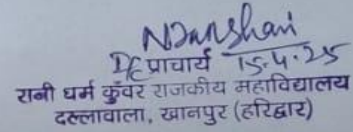 प्राचार्य 15.4.25
रानी धर्म कुँवर राजकीय महाविद्यालय
दल्लावाला, खानपुर (हरिद्वार)